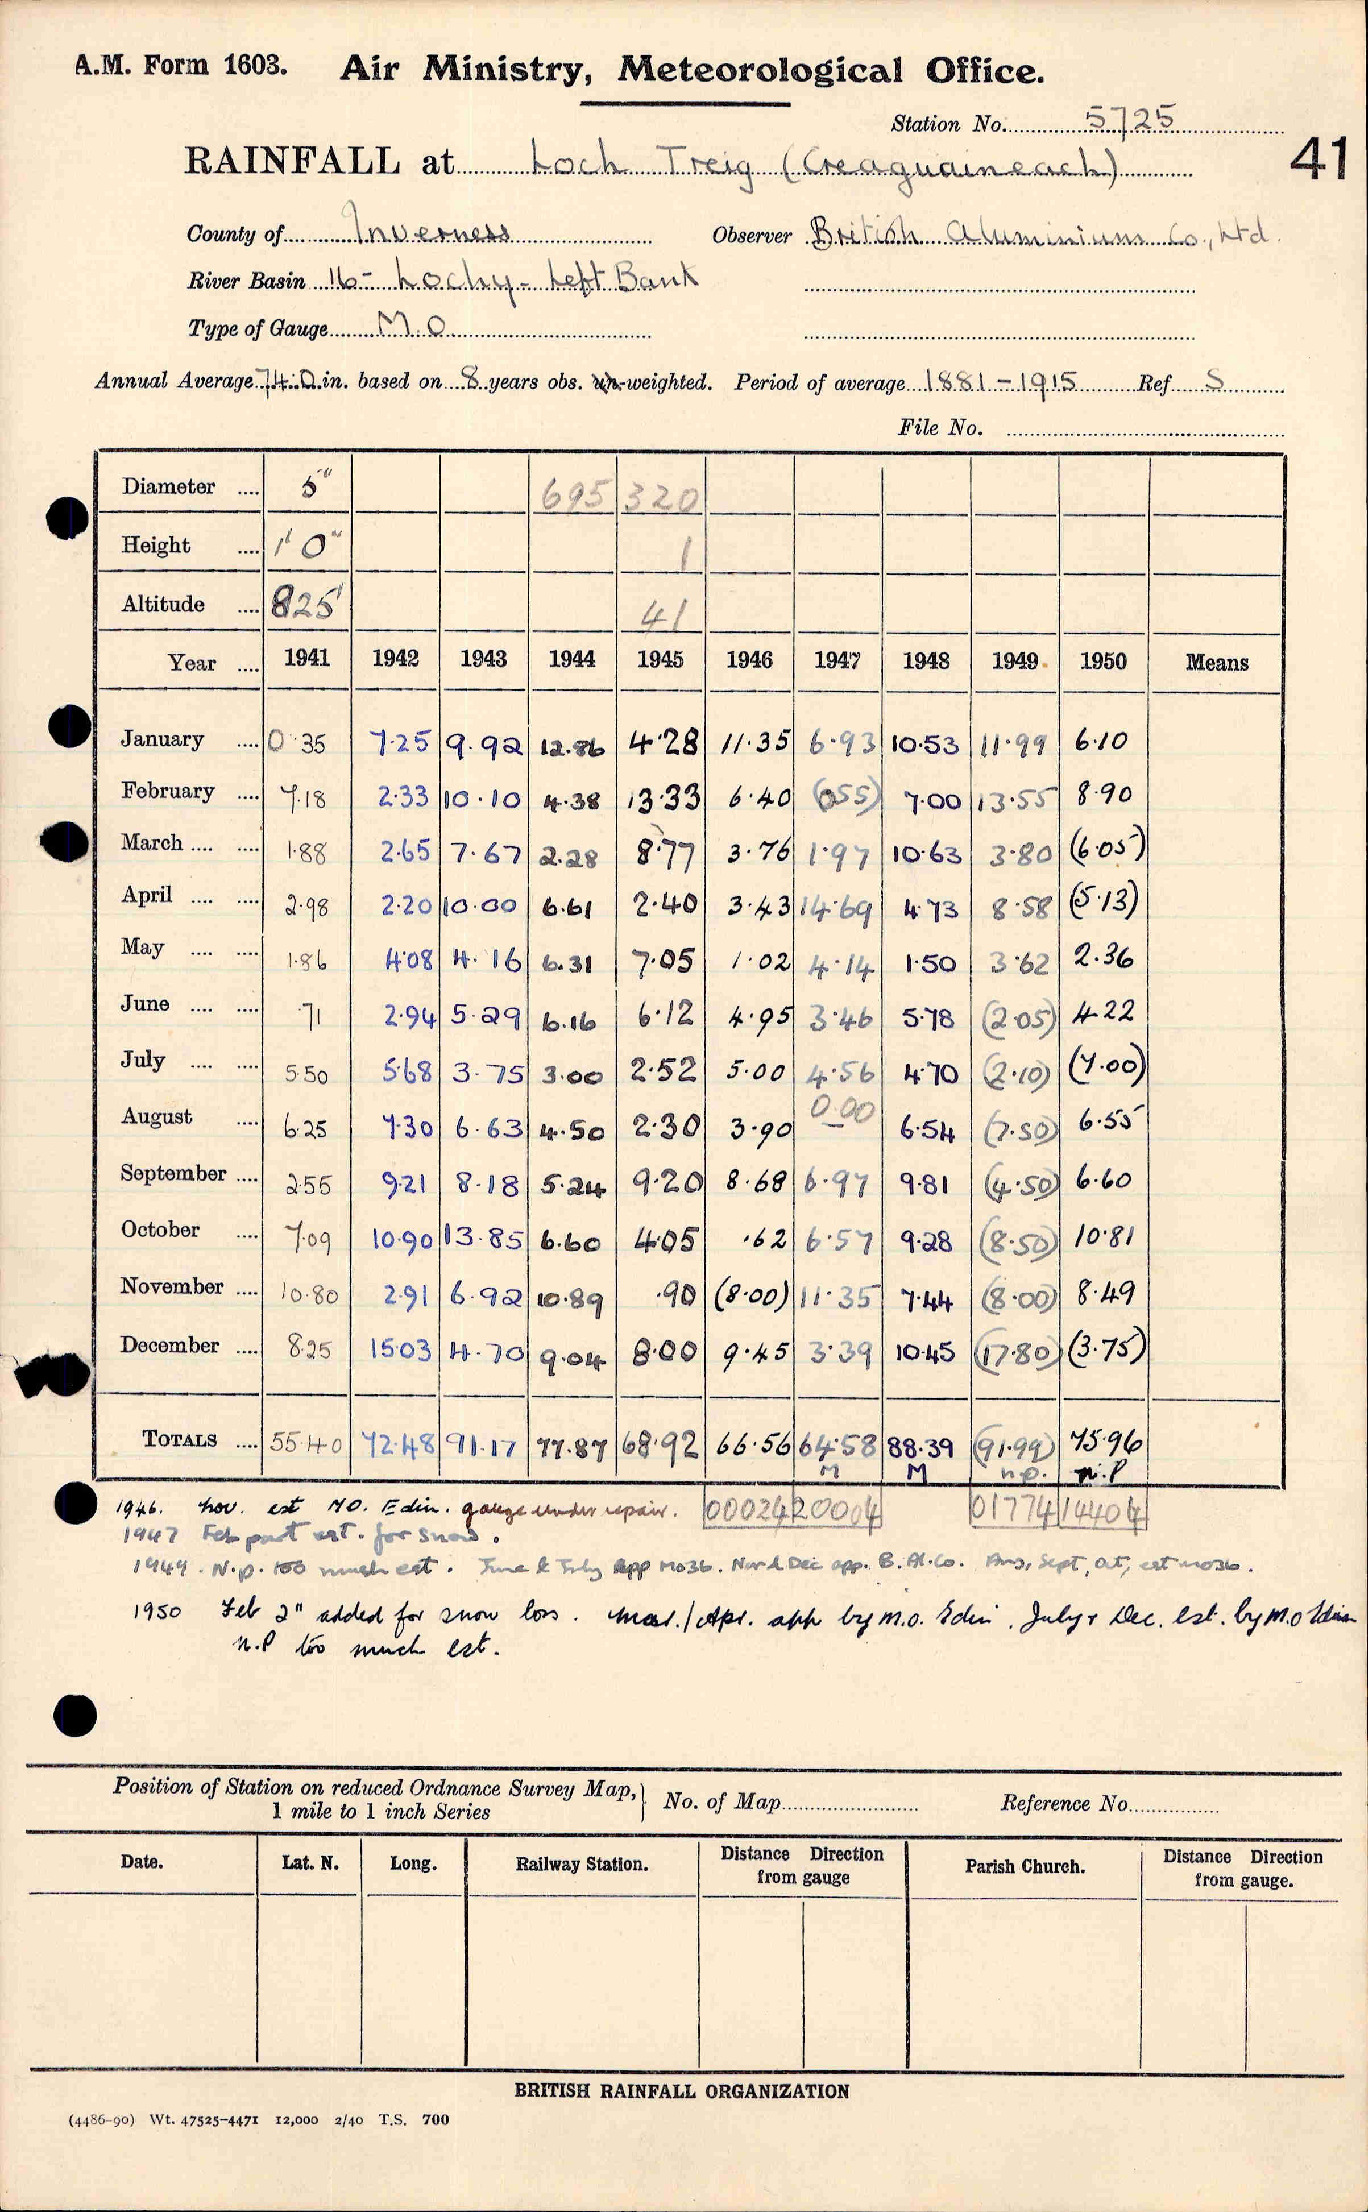 A.M. Form 1603. Air Ministry, Meteorological Office.
Station No. 5725
41
RAINFALL at Loch Treig (Creaguaineach)
County of Inverness Observer British Aluminium Co., Ltd.
River Basin 16 - Lochy - Left Bank
Type of Gauge M.O
Annual Average 74.0 in. based on 8 years obs. un-weighted. Period of average 1881-1915 Ref S
File No.
Diameter .... 5" 695 320
Height .... 1' 0" 1
Altitude .... 825' 41
Year .... 1941 1942 1943 1944 1945 1946 1947 1948 1949 1950 Means
January .... 0.35 7.25 9.92 12.86 4.28 11.35 6.93 10.53 11.99 6.10
February .... 7.18 2.33 10.10 4.38 13.33 6.40 (0.55) 7.00 13.55 8.90
March .... .... 1.88 2.65 7.67 2.28 8.77 3.76 1.97 10.63 3.80 (6.05)
April .... .... 2.98 2.20 10.00 6.61 2.40 3.43 14.69 4.73 8.58 (5.13)
May .... .... 1.86 4.08 4.16 6.31 7.05 1.02 4.14 1.50 3.62 2.36
June .... .... .71 2.94 5.29 6.16 6.12 4.95 3.46 5.78 (2.05) 4.22
July .... .... 5.50 5.68 3.75 3.00 2.52 5.00 4.56 4.70 (2.10) (7.00)
August .... 6.25 7.30 6.63 4.50 2.30 3.90 0.00 6.54 (7.50) 6.55
September .... 2.55 9.21 8.18 5.24 9.20 8.68 6.97 9.81 (4.50) 6.60
October .... 7.09 10.90 13.85 6.60 4.05 .62 6.57 9.28 (8.50) 10.81
November .... 10.80 2.91 6.92 10.89 .90 (8.00) 11.35 7.44 (8.00) 8.49
December .... 8.25 15.03 4.70 9.04 8.00 9.45 3.39 10.45 (17.80) (3.75)
TOTALS .... 55.40 72.48 91.17 77.87 68.92 66.56 64.58 88.39 (91.99) 75.96
M M n.p. n.P
1946. Nov. est M.O. Edin. gauge under repair. 00024 20004 01774 14404
1947 Feb part est. for snow.
1949. N.p. too much est. June & July app MO3b. Nov & Dec app. B. Al. Co. Aug, Sept, Oct, est MO3b.
1950 Feb 2" added for snow loss. Mar./Apr. app by M.O. Edin. July & Dec. est. by M.O Edin
n.P too much est.
Position of Station on reduced Ordnance Survey Map, 1 mile to 1 inch Series } No. of Map Reference No.
Date. Lat. N. Long. Railway Station. Distance Direction from gauge Parish Church. Distance Direction from gauge.
BRITISH RAINFALL ORGANIZATION
(4486-90) Wt. 47525-4471 12,000 2/40 T.S. 700